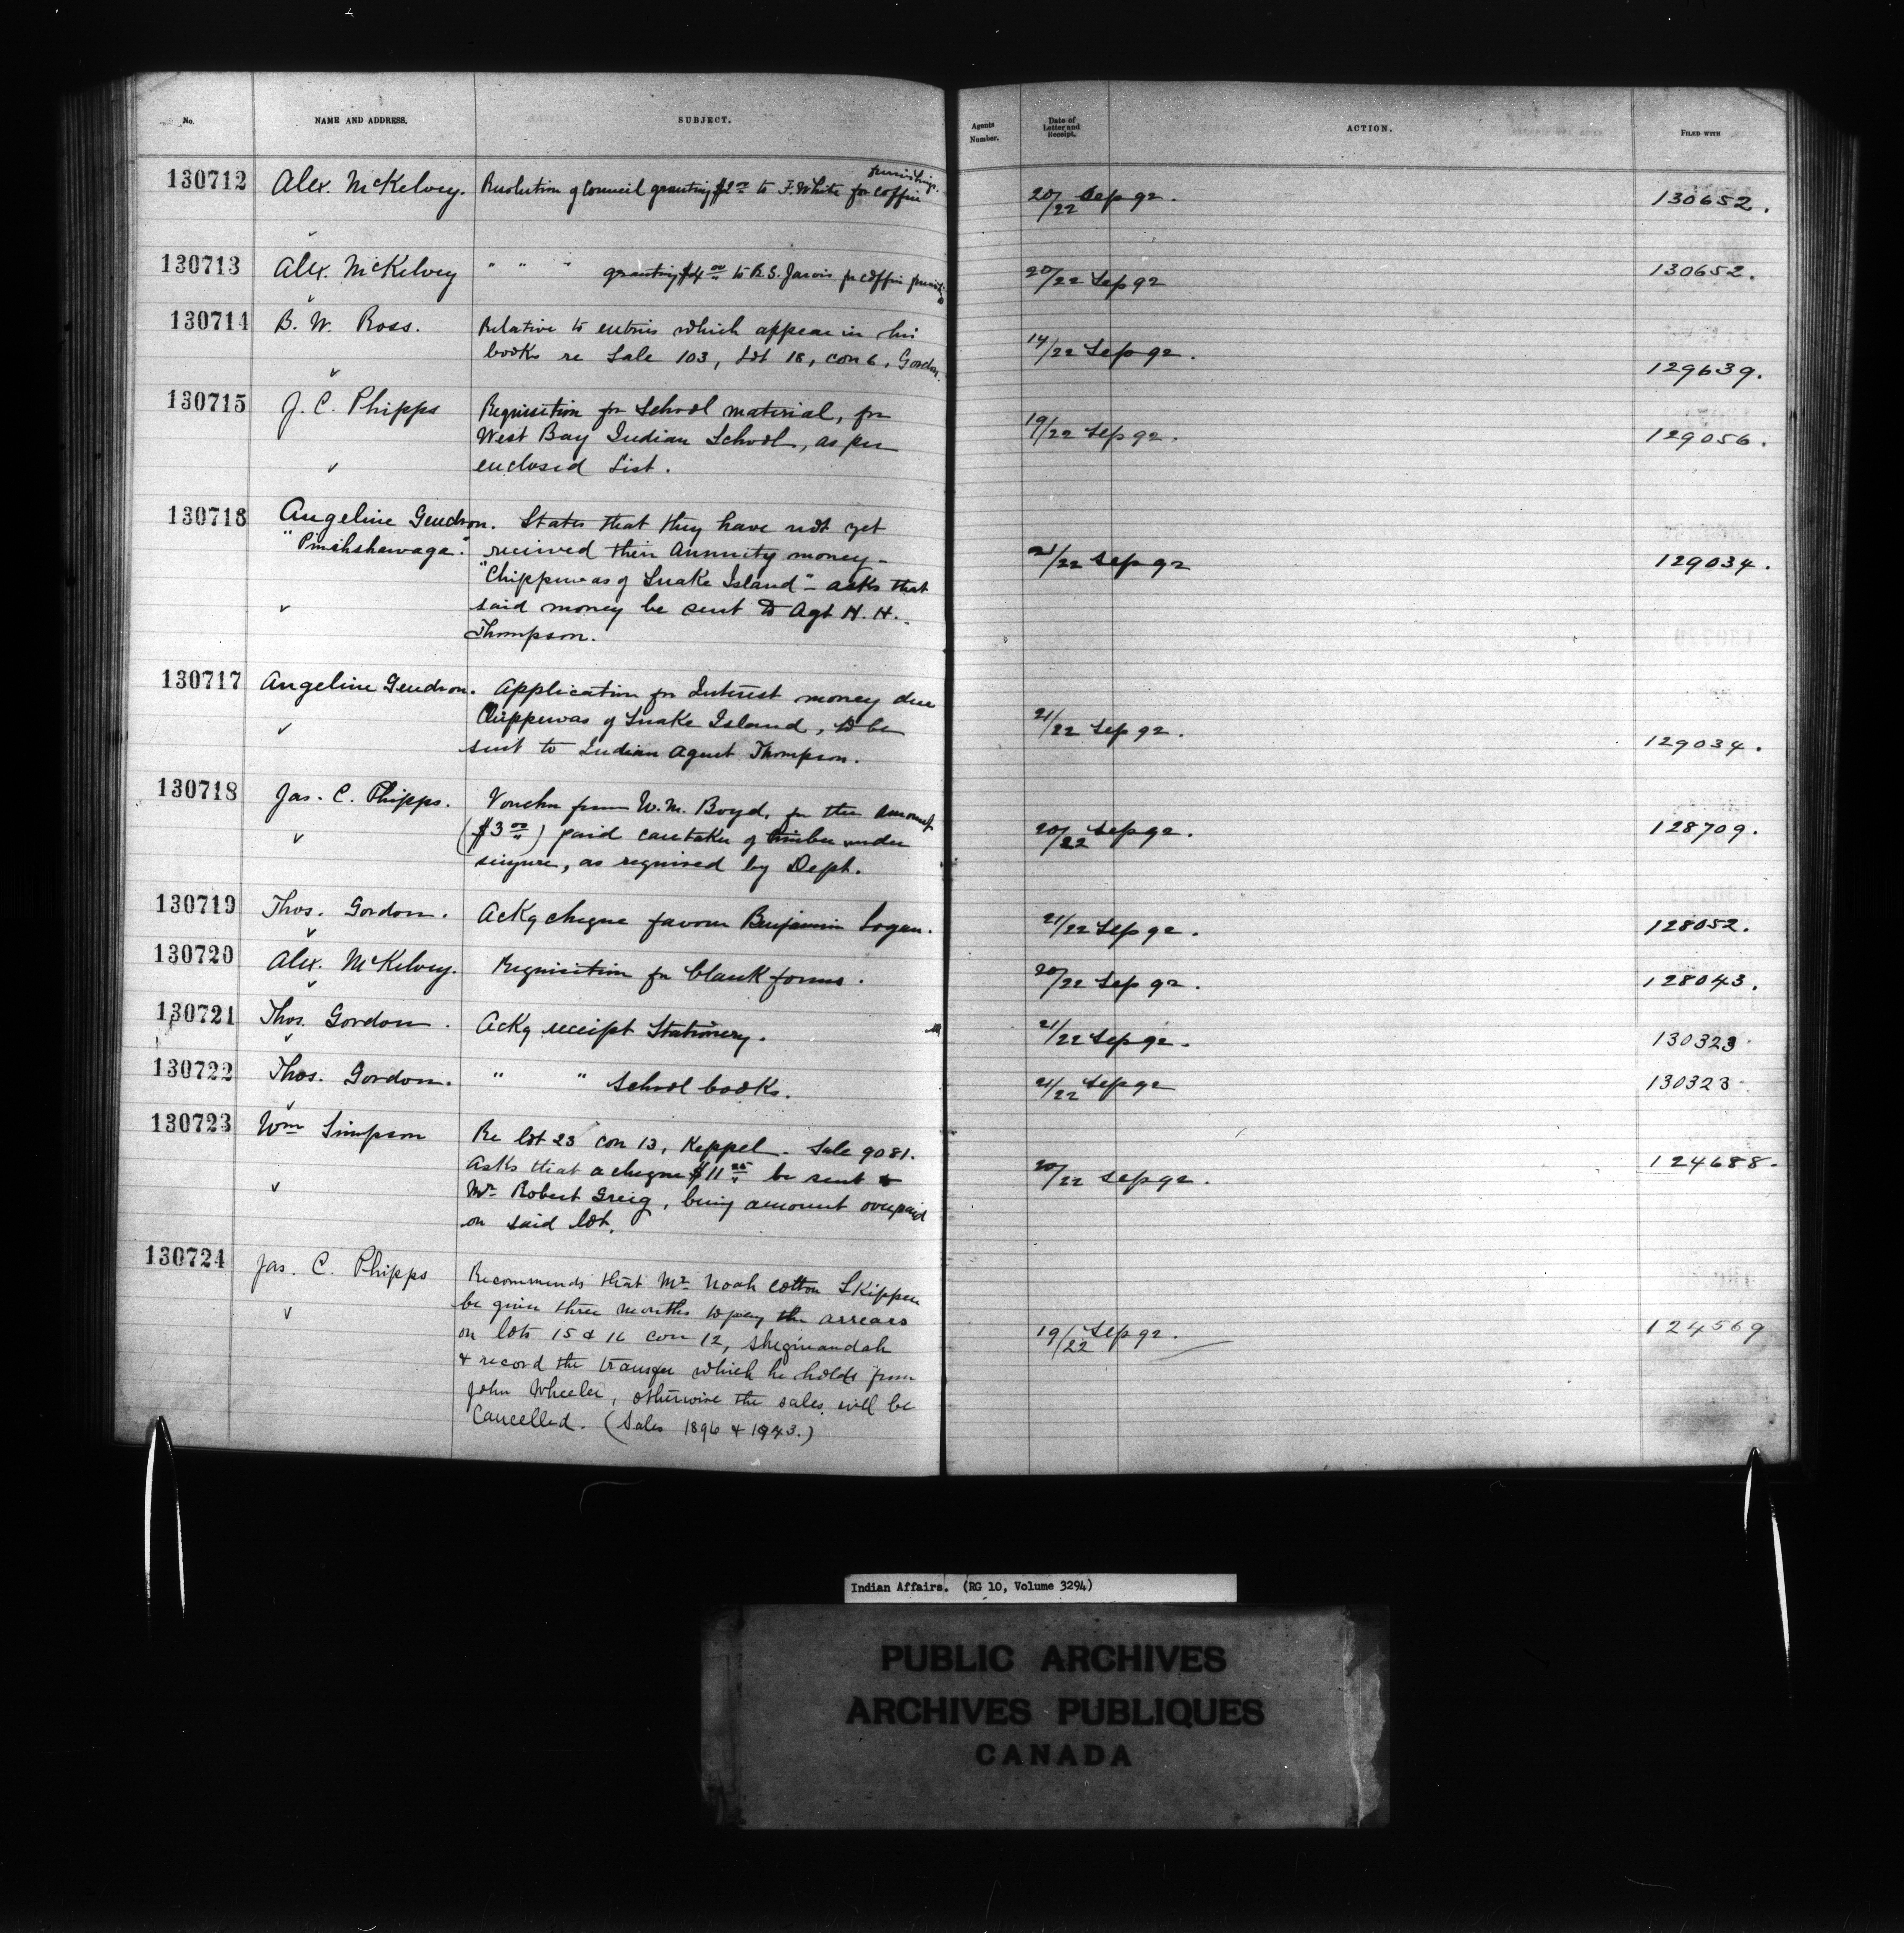 No. NAME AND ADDRESS. SUBJECT. Agents Number. Date of Letter and Receipt. ACTION. FILED WITH
furnishings.
130712 Alex. McKelvey. Resolution of Council granting $2.00 to F. White for coffin 20/22 Sep 92. 130652.
130713 Alex. McKelvey " " " granting $4.00 to R. S. Jarvis for coffin 20/22 Sep 92 130652.
130714 B. W. Ross. Relative to entries which appear in his
books re Sale 103, Lot 18, con 6, Gordon. 14/22 Sep 92. 129639.
130715 J. C. Phipps Requisition for School material, for
West Bay Indian School, as per 19/22 Sep 92. 129056.
enclosed List.
130716 Angeline Gendron. States that they have not yet
received their Annuity money – 21/22 Sep 92 129034.
"Chippewas of Snake Island" – asks that
said money be sent to Agt H. H.
Thompson.
130717 Angeline Gendron. Application for Interest money due
Chippewas of Snake Island, to be 21/22 Sep 92. 129034.
sent to Indian Agent Thompson.
130718 Jas. C. Phipps. Voucher from W. M. Boyd, for the amount
($3.00) paid caretaker of timber under 20/22 Sep 92. 128709.
seizure, as required by Dept.
130719 Thos. Gordon. Ackg cheque favour Benjamin Logan. 21/22 Sep 92. 128052.
130720 Alex. McKelvey. Requisition for blank forms. 20/22 Sep 92. 128043.
130721 Thos. Gordon. Ackg receipt Stationery. 21/22 Sep 92. 130323
130722 Thos. Gordon. " " School books. 21/22 Sep 92 130323
130723 Wm Simpson Re lot 23 con 13, Keppel – Sale 9081.
Asks that a cheque $11.25 be sent to 20/22 Sep 92. 124688.
Mr. Robert Greig, being amount overpaid
on said lot.
130724 Jas. C. Phipps Recommends that Mr. Noah Cotton Skippen
be given three months to pay the arrears
on lots 15 & 16 con 12, Sheguiandah 19/22 Sep 92. 124569
& record the transfer which he holds from
John Wheeler, otherwise the sales will be
Cancelled. (Sales 1896 & 1943.)
Indian Affairs. (RG 10, Volume 3294)
PUBLIC ARCHIVES
ARCHIVES PUBLIQUES
CANADA